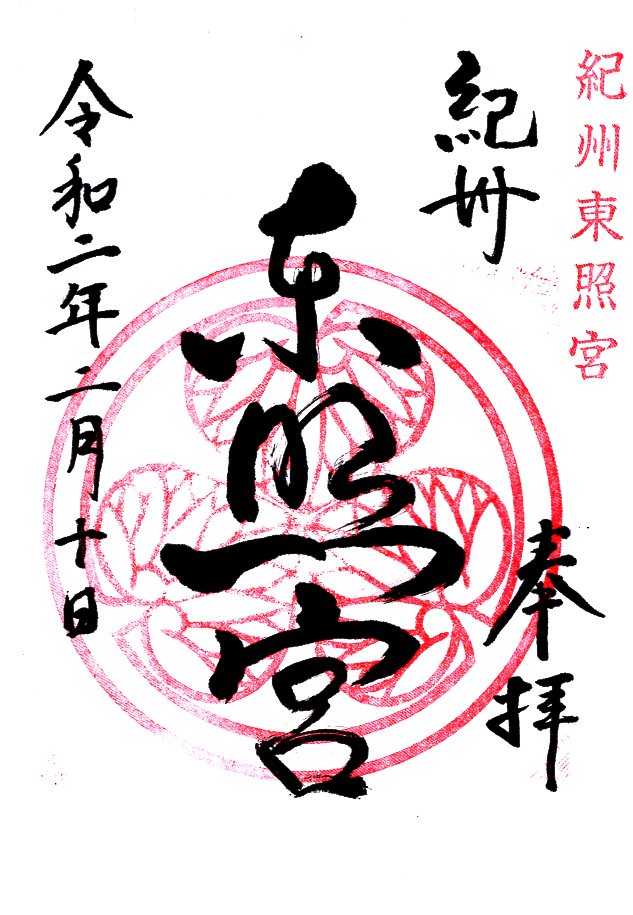 紀州東照宮
紀州
奉拝
東照宮
令和二年二月十日